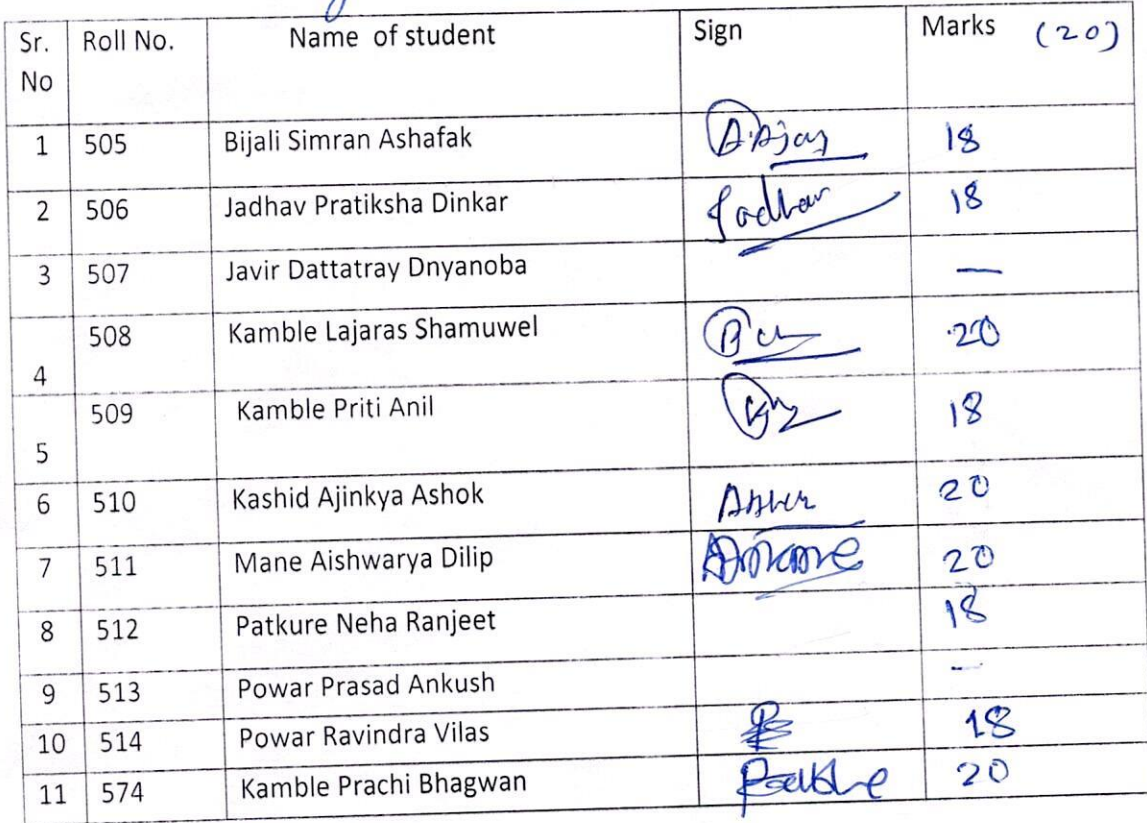 Sr. No Roll No. Name of student Sign Marks (20)
1 505 Bijali Simran Ashafak 18
2 506 Jadhav Pratiksha Dinkar Jadhav 18
3 507 Javir Dattatray Dnyanoba —
4 508 Kamble Lajaras Shamuwel 20
5 509 Kamble Priti Anil 18
6 510 Kashid Ajinkya Ashok 20
7 511 Mane Aishwarya Dilip 20
8 512 Patkure Neha Ranjeet 18
9 513 Powar Prasad Ankush -
10 514 Powar Ravindra Vilas 18
11 574 Kamble Prachi Bhagwan 20